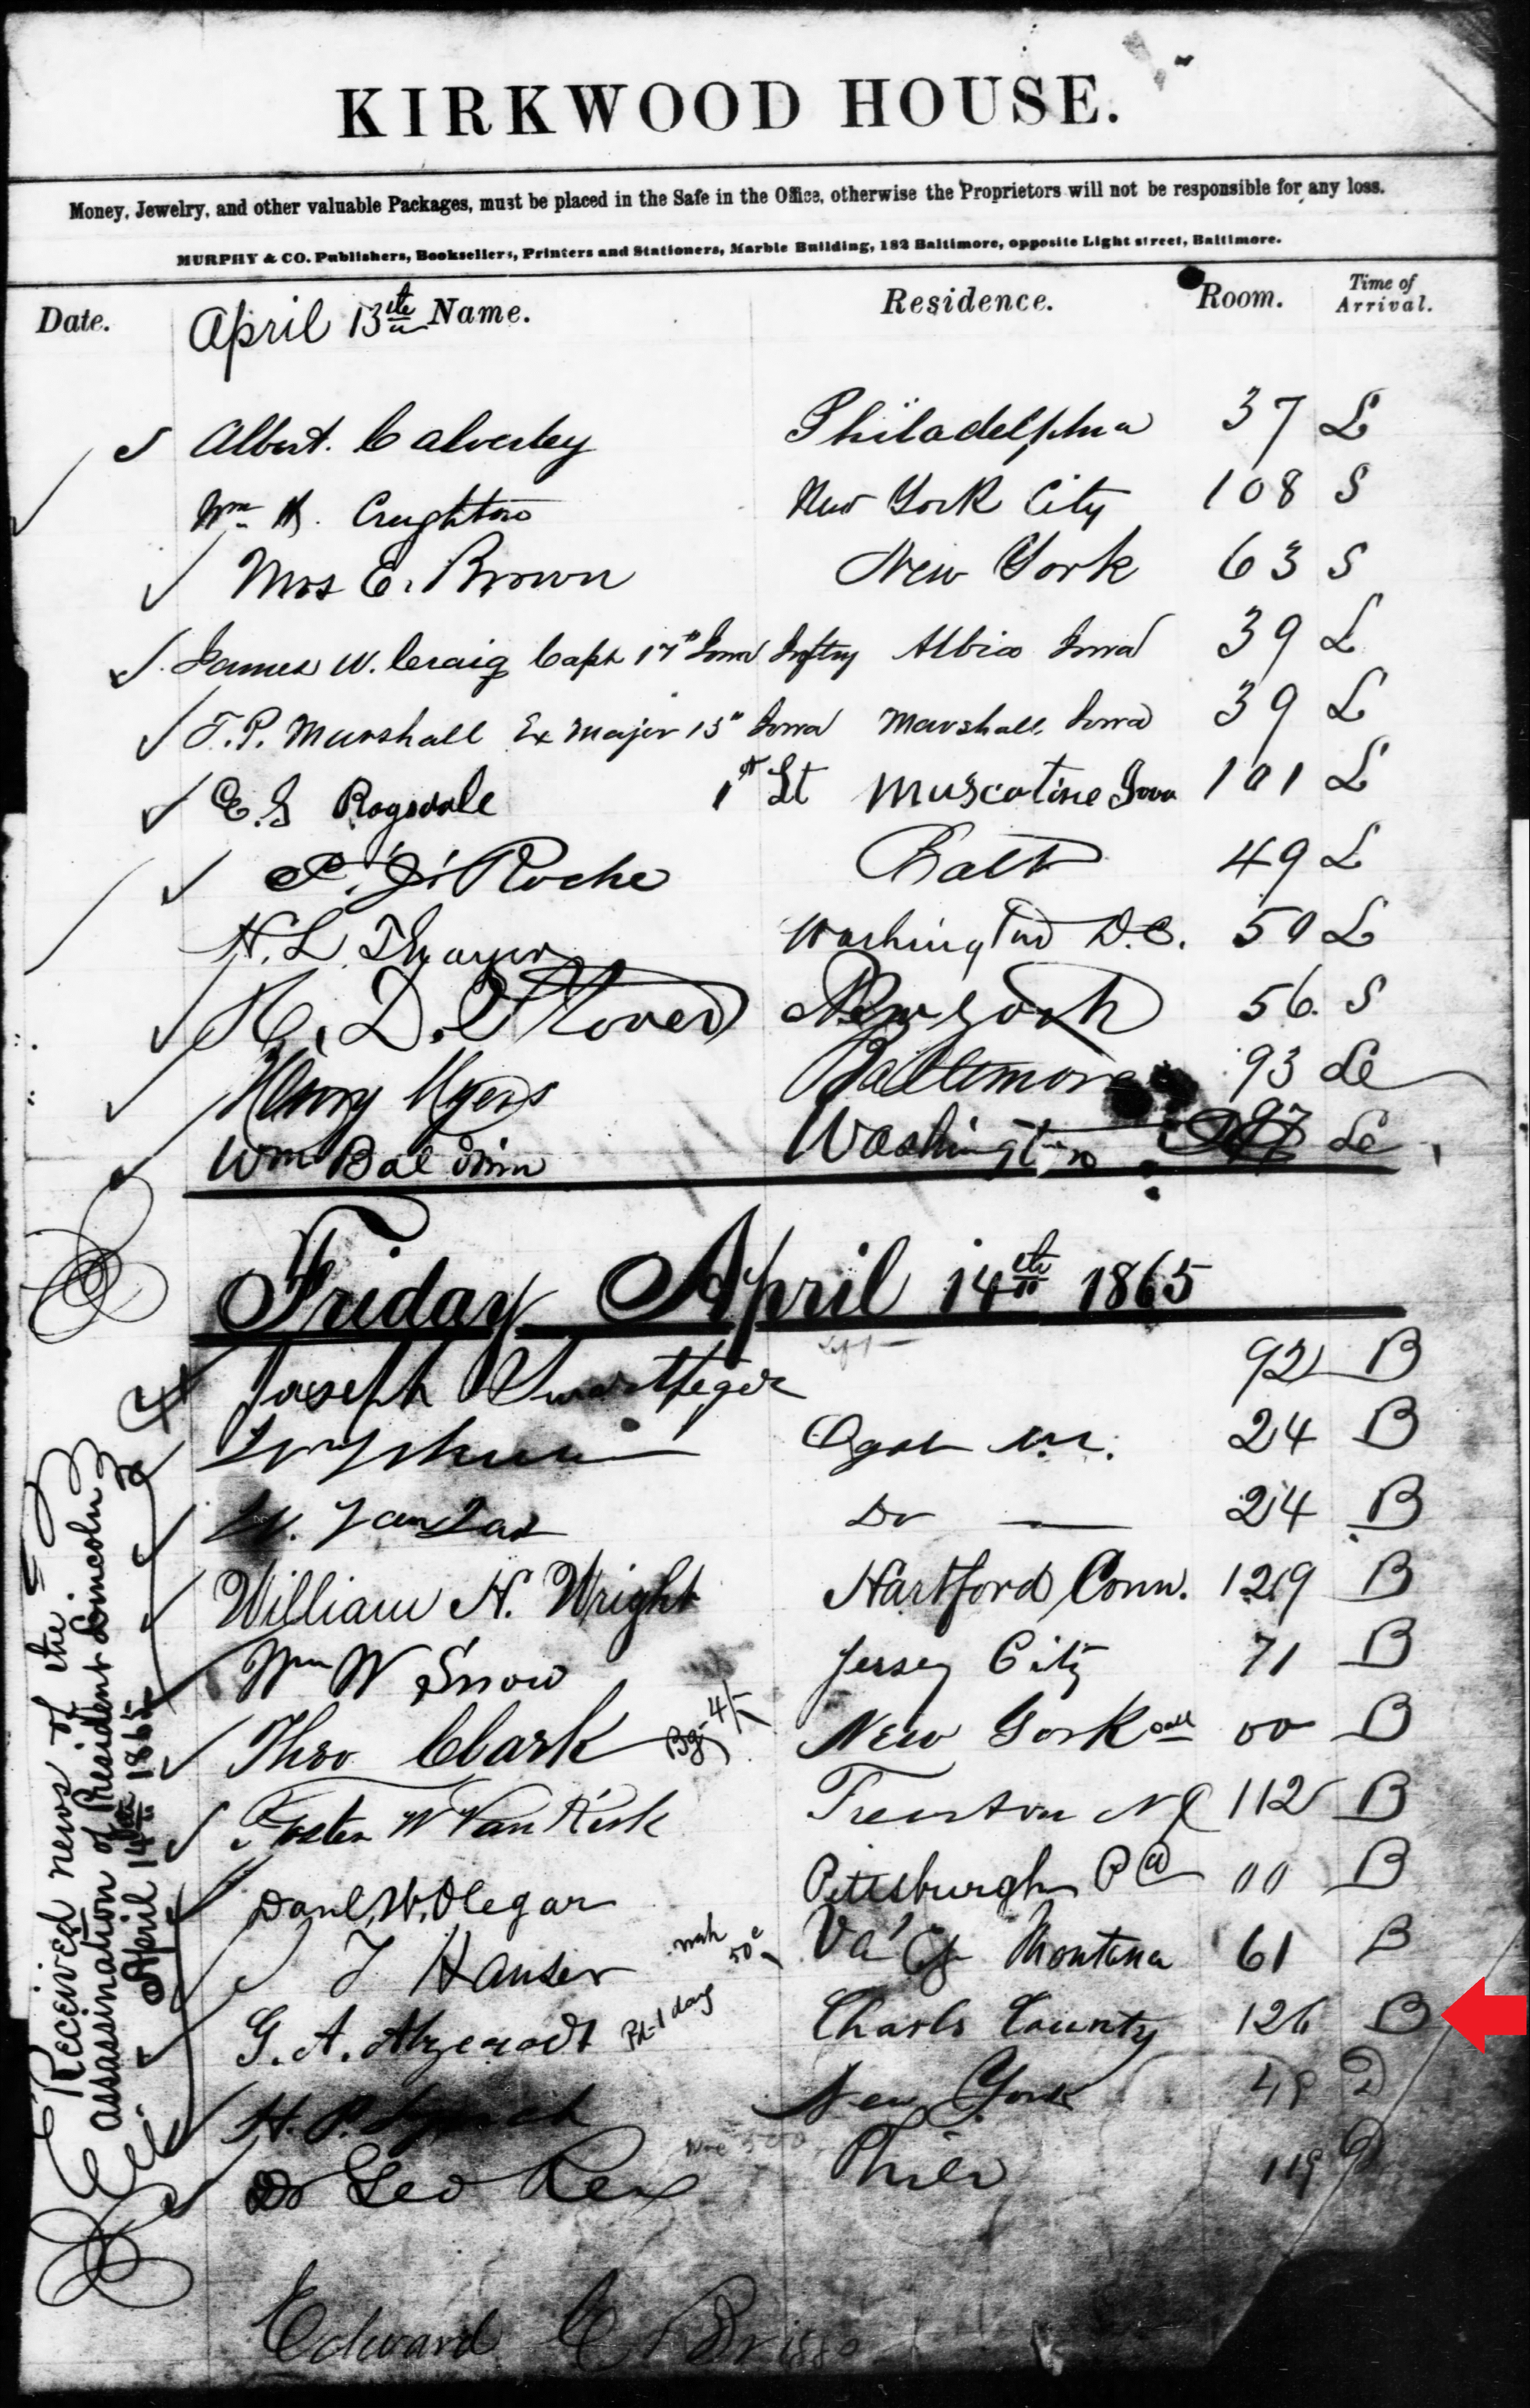 KIRKWOOD HOUSE.
Money, Jewelry, and other valuable Packages, must be placed in the Safe in the Office, otherwise the Proprietors will not be responsible for any loss.
MURPHY & CO. Publishers, Booksellers, Printers and Stationers, Marble Building, 182 Baltimore, opposite Light street, Baltimore.
Date. April 13th Name. Residence. Room. Time of Arrival.
Albert. Calverley Philadelphia 37 L
Wm H. Creighton New York City 108 S
Mrs E. Brown New York 63 S
James W. Craig Capt 17th Iowa Inftry Albia Iowa 39 L
T. P. Marshall Ex Major 15" Iowa Marshall, Iowa 39 L
E. G Ragsdale 1st Lt Muscatine Iowa 101 L
P. J. Roche Balto 49 L
N. L. Thayer Washington D.C. 50 L
H. D. Stover New York 56. S
Henry Myers Baltimore 93 Le
Wm Baldwin Washington 97 Le
Friday April 14th 1865
Joseph 92 B
24 B
W. Do — 24 B
William H. Wright Hartford Conn. 129 B
Wm W Snow Jersey City 71 B
Theo Clark New York 00 B
Foster W Van Kirk Trenton NJ 112 B
Danl. W. Olegar Pittsburgh Pa 00 B
T Hauser Va Cy Montana 61 B
G. A. Atzerodt Pd 1 day Charls County 126 B
H. P. New York 49 D
Dr Geo Rex Phila 119 D
Edward C
Received news of the
assassination of President Lincoln
April 14th 1865